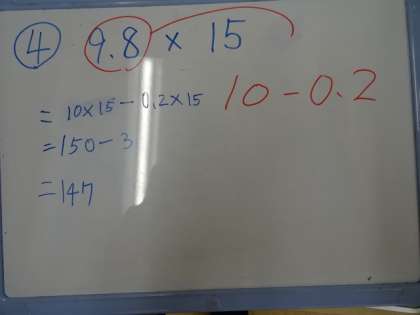 ④ 9.8 × 15
= 10×15-0.2×15
10-0.2
=150-3
=147